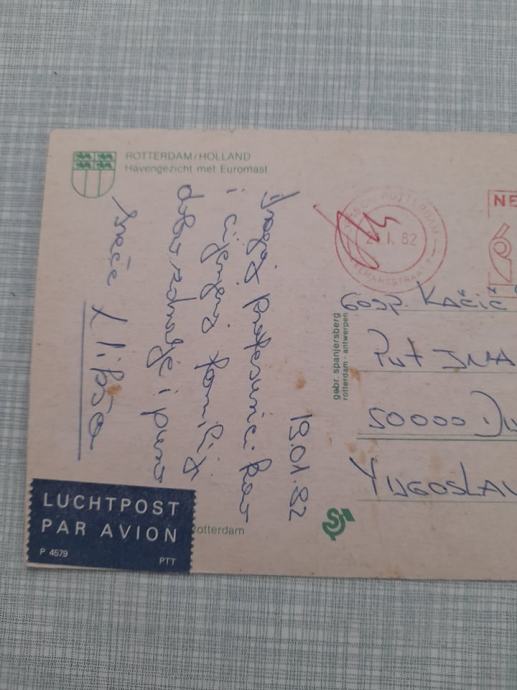 ROTTERDAM/HOLLAND
Havengezicht met Euromast
19.01.82
Dragoj profesorici Kar
i cijenjenoj familiji
dobro zdravlje i puno
sreće
I. 82
NE
Gosp Kačić
Put JNA
50000 Du
YUGOSLAV
gebr. spanjersberg
rotterdam - antwerpen
LUCHTPOST
PAR AVION
P 4579
PTT
otterdam